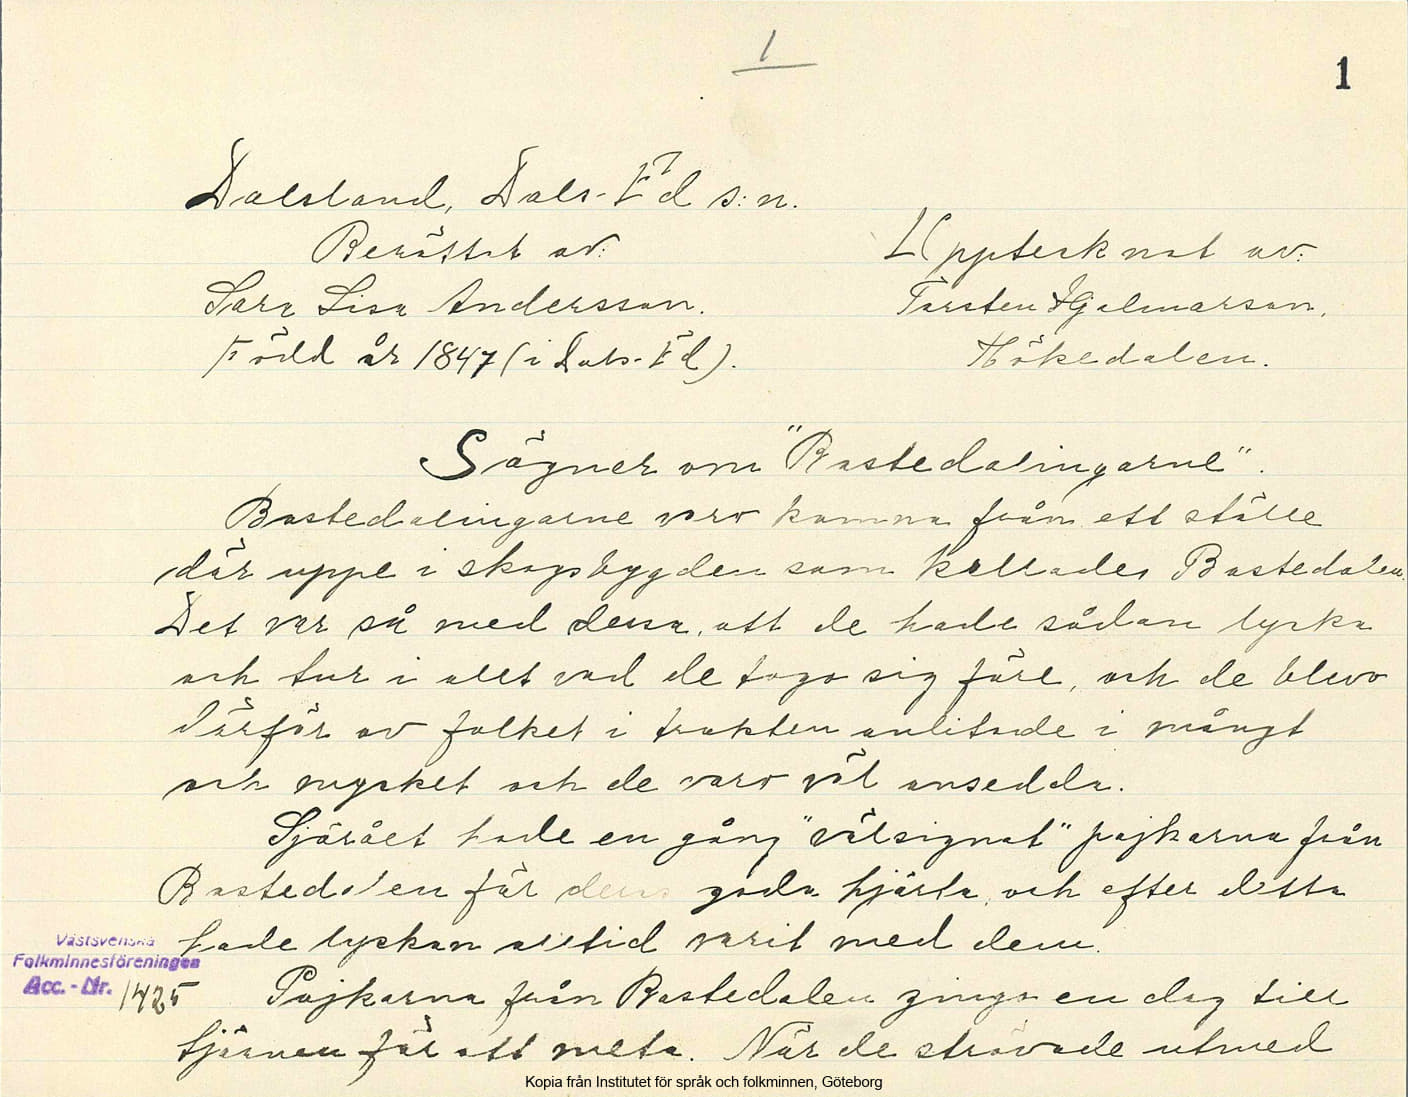 1
1
Dalsland, Dals-Ed s:n.
Berättat av:
Upptecknat av:
Sara Lisa Andersson.
Torsten Hjelmarson,
Född år 1847 (i Dals-Ed).
Hökedalen.
Sägner om "Bastedalingarne".
Bastedalingarne voro komna från ett ställe
där uppe i skogsbygden som kallades Bastedalen.
Det var så med dessa, att de hade sådan lycka
och tur i allt vad de togo sig före, och de blevo
därför av folket i trakten anlitade i mångt
och mycket och de voro väl ansedda.
Sjörået hade en gång "välsignat" pojkarna från
Bastedalen för deras goda hjärta, och efter detta
hade lyckan alltid varit med dem.
Pojkarna från Bastedalen gingo en dag till
tjärnen för att meta. När de strövade utmed
Västsvenska
Folkminnesföreningen
Acc.-Nr. 1425
Kopia från Institutet för språk och folkminnen, Göteborg